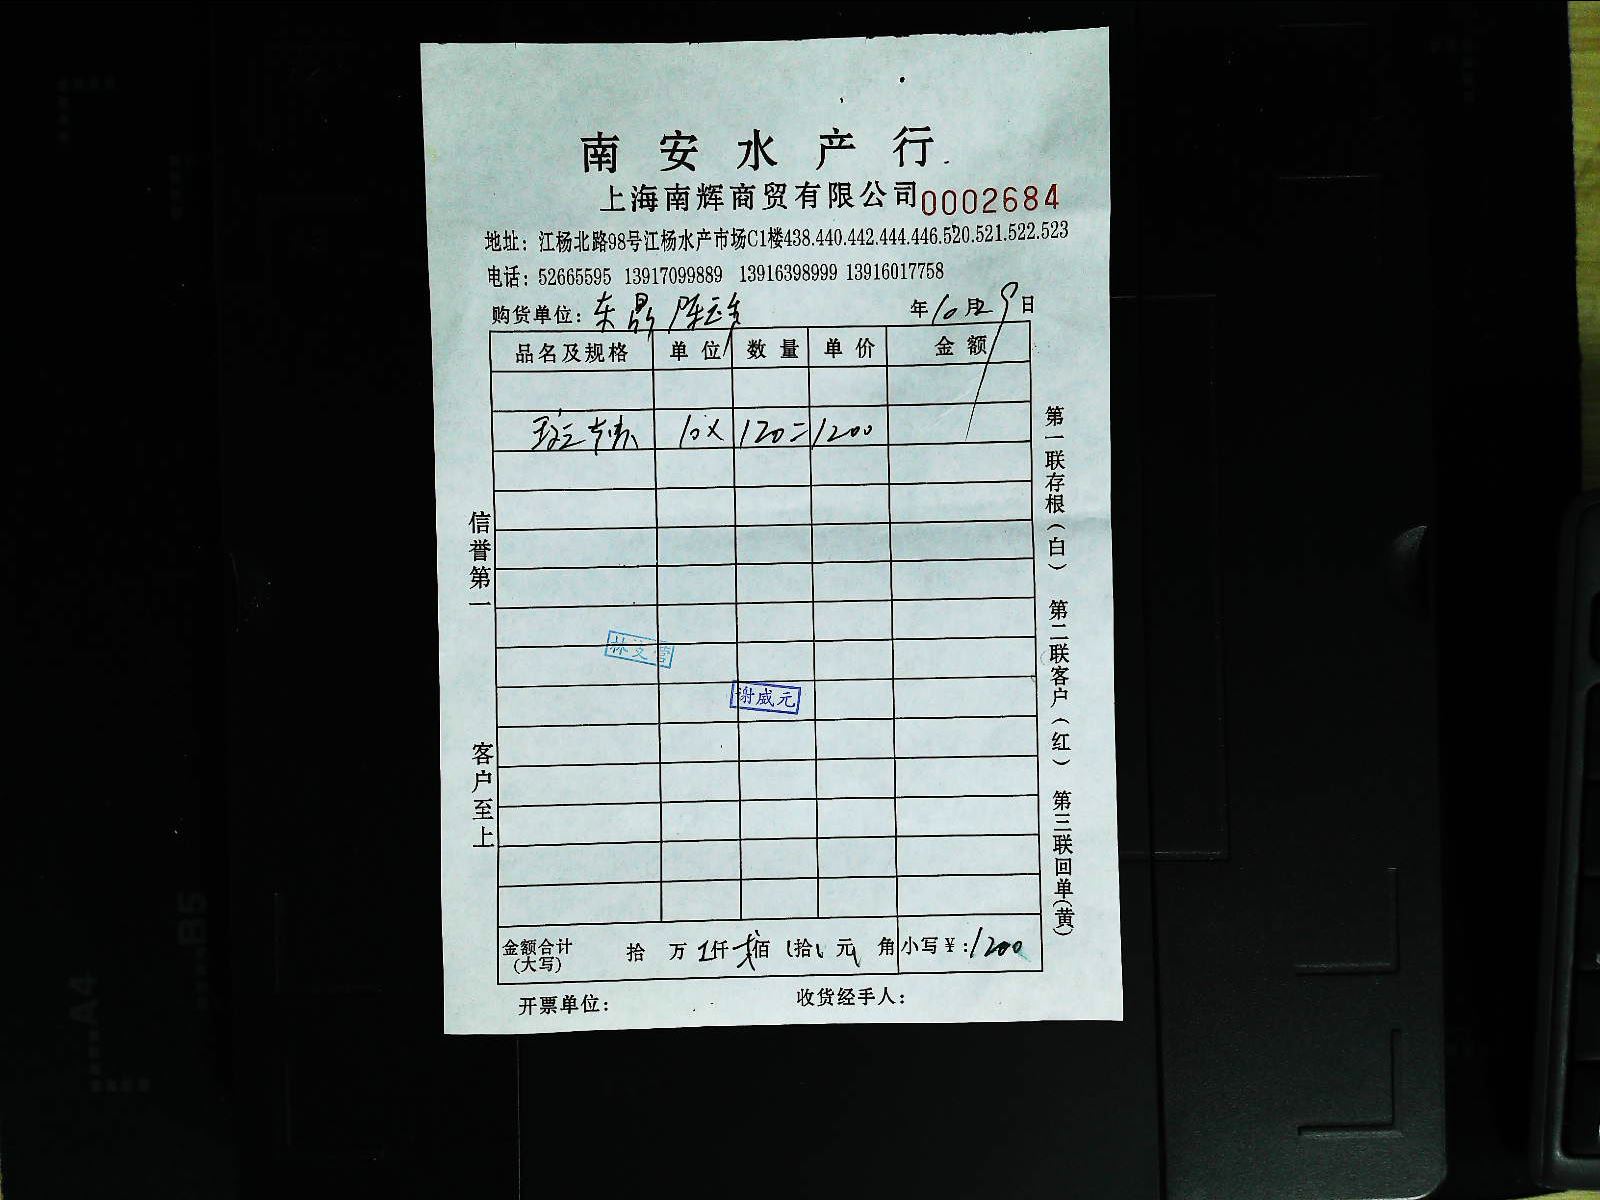 南安水产行
上海南辉商贸有限公司 0002684
地址：江杨北路98号江杨水产市场C1楼438.440.442.444.446.520.521.522.523
电话：52665595 13917099889 13916398999 13916017758
购货单位：东鼎 陈 年10月29日
品名及规格 单位 数量 单价 金额
10× 120= 1200
信誉第一
客户至上
谢威元
第一联存根（白） 第二联客户（红） 第三联回单（黄）
金额合计（大写） 拾 万 仟 佰 拾 元 角 小写￥：1200
开票单位： 收货经手人：